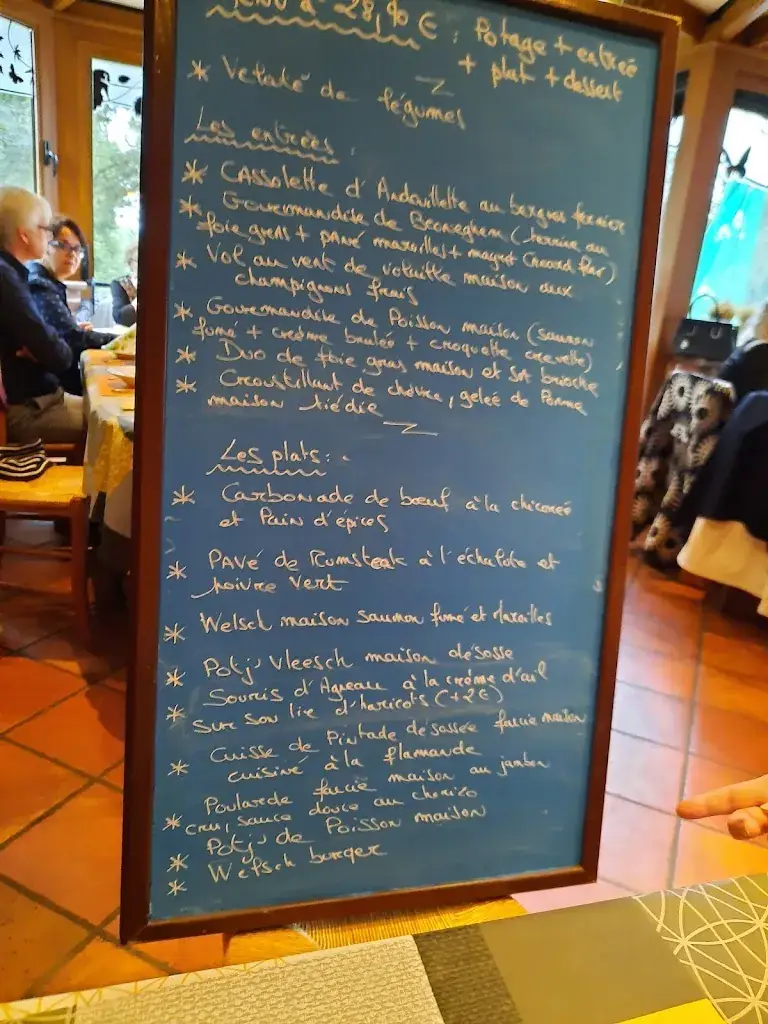 Menu à 28,90 € : Potage + entrée
+ plat + dessert
* Velouté de légumes
Les entrées :
* CAssolette d'Andouillette au bergues fermier
* Gourmandise de Beoneghem (terrine au
foie gras + pavé maroilles + magret canard fumé)
* Vol au vent de volaille maison aux
champignons frais
* Gourmandise de Poisson maison (saumon
fumé + crème brulée + croquette crevette)
* Duo de foie gras maison et sa brioche
* Croustillant de chèvre, gelée de Pomme
maison tiédie
Les plats :
* Carbonade de bœuf à la chicorée
et Pain d'épices
* PAVÉ de Rumsteak à l'échalote et
poivre vert
* Welsch maison saumon fumé et Maroilles
* Potj' Vleesch maison désossé
* Souris d'Agneau à la crème d'ail
sur son lit d'haricots (+2€)
* Cuisse de Pintade désossée farcie maison
cuisiné à la flamande
* Poularde farcie maison au jambon
cru, sauce douce au chorizo
* Potj' de Poisson maison
* Welsch burger